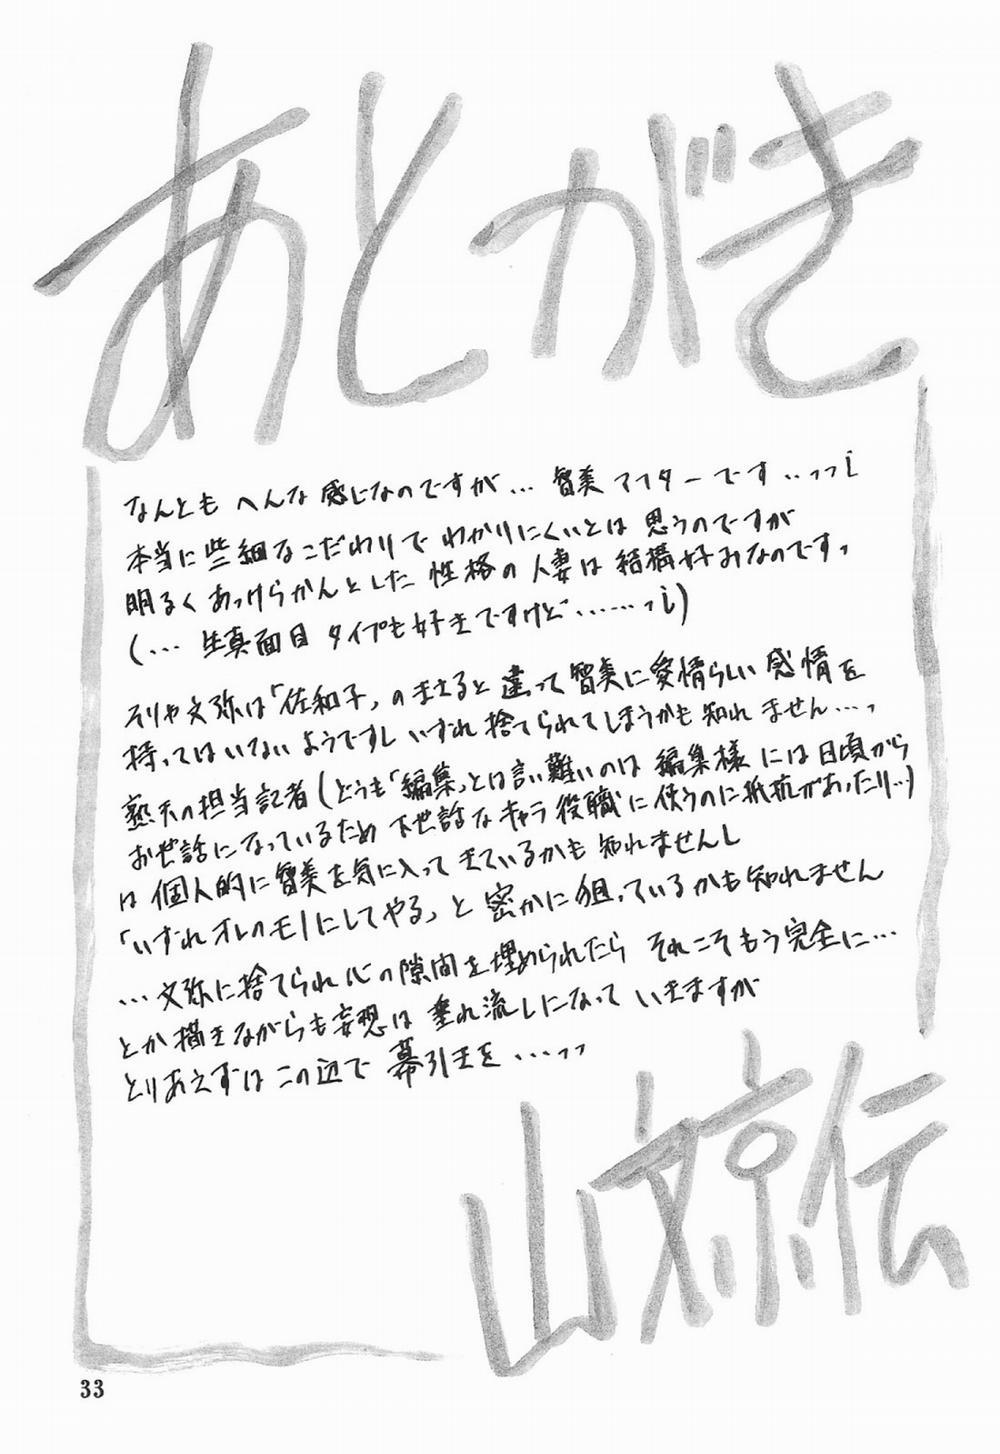 あとがき
なんとも へんな 感じなのですが… 智美アフターです‥‥っっ¡
本当に些細なこだわりで わかりにくいとは 思うのですが
明るく あっけらかんとした 性格の 人妻は 結構好みなのです。
(… 生真面目 タイプも好きですけど ……っ¡)
そりゃ文弥は「佐和子」のまさると 違って 智美に愛情らしい 感情を
持ってはいないようですし いずれ 捨てられてしまうかも 知れません…。
熟天の担当記者(どうも「編集」とは言い難いのは 編集様 には 日頃から
お世話になっているため 下世話な キャラ 役職 に 使うのに抵抗があったり…)
は 個人的に智美を気に入って きているかも 知れませんし
「いずれ オレのモノにしてやる」と 密かに狙っているかも知れません
… 文弥に捨てられ心の隙間を埋められたら それこそもう完全に…
とか描きながらも妄想は 垂れ流しになって いきますが
とりあえずは この辺で 幕引きを …っっ
山文京伝
33